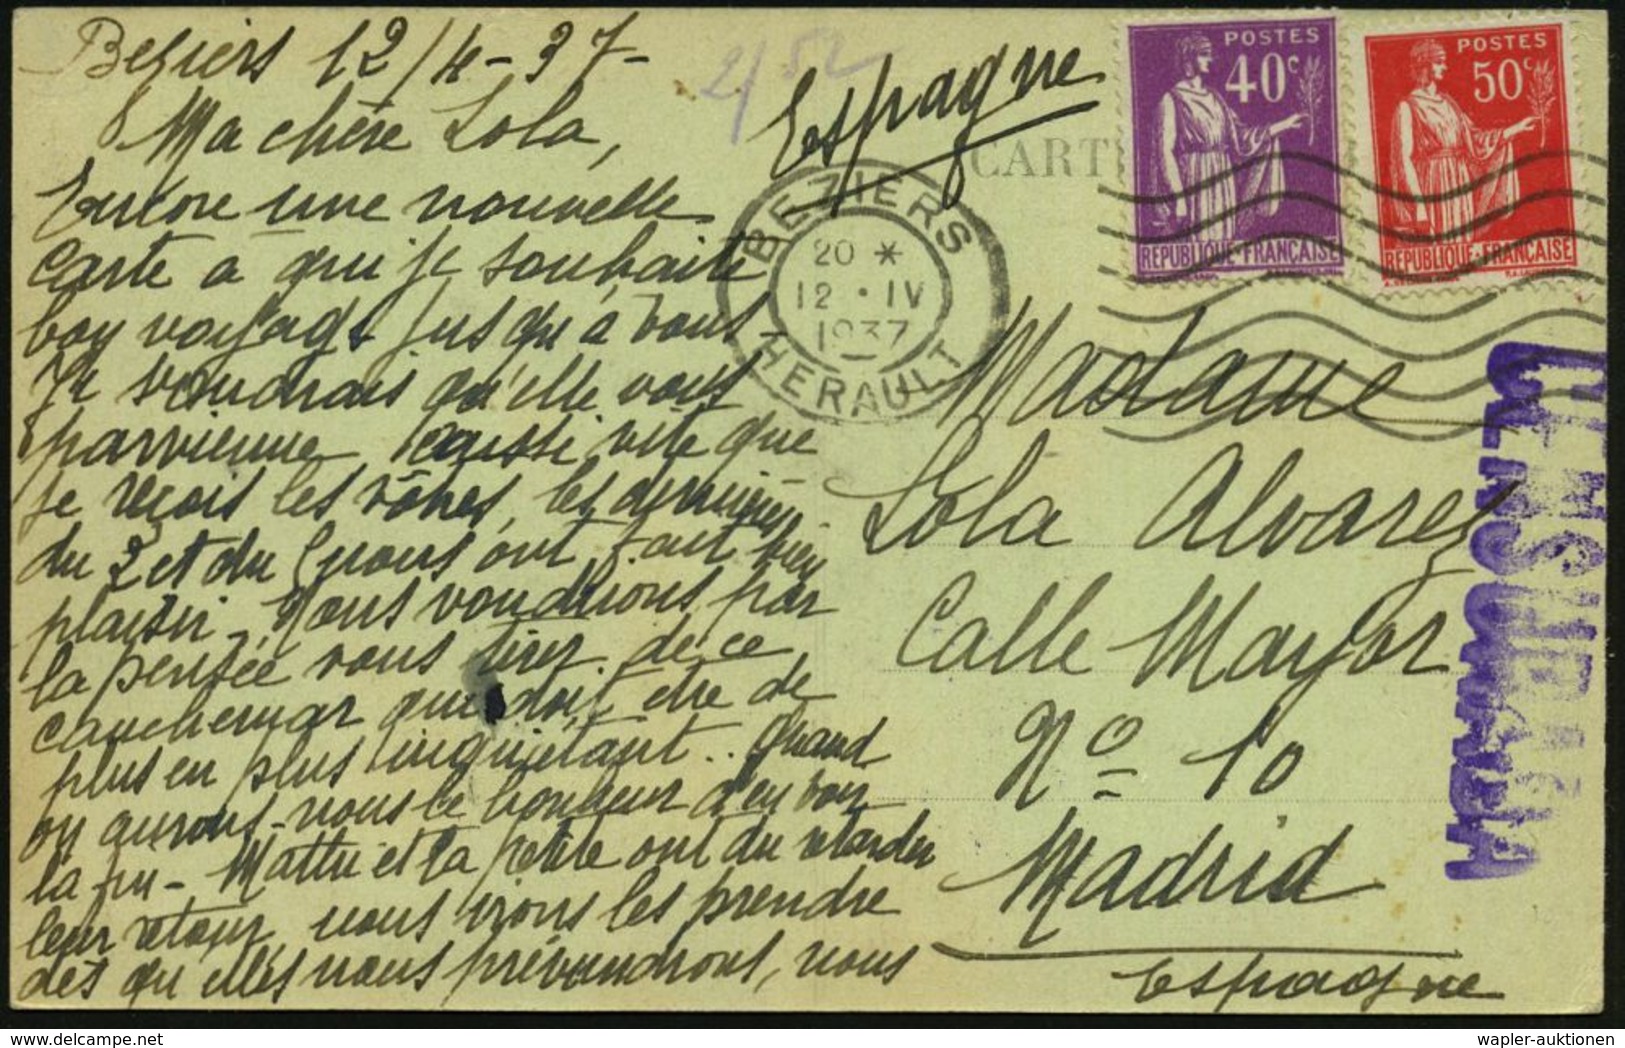 Beziers 12/4-37-
Ma chère Lola,
Encore une nouvelle
carte a qui je souhaite
bon voyage jusqu'à vous
Je voudrais qu'elle vous
parvienne aussi vite que
je reçois les vôtres, les dernières
du 2 et du nous ont fait bien
plaisir. Nous voudrions par
la pensée vous tirer de ce
cauchemar qui doit être de
plus en plus inquiétant.. Quand
en aurons-nous le bonheur d'en voir
la fin- et la petite ont du retarder
leur retour, nous irons les prendre
dès qu'elles nous préviendront, nous
2/52
Espagne
CART
BEZIERS
20 *
12 • IV
1937
HERAULT
POSTES
40c
REPUBLIQUE-FRANÇAISE
POSTES
50c
REPUBLIQUE-FRANÇAISE
Madame
Lola Alvarez
Calle Mayor
Nº 10
Madrid
Espagne
CENSURADA
wapler-auktionen